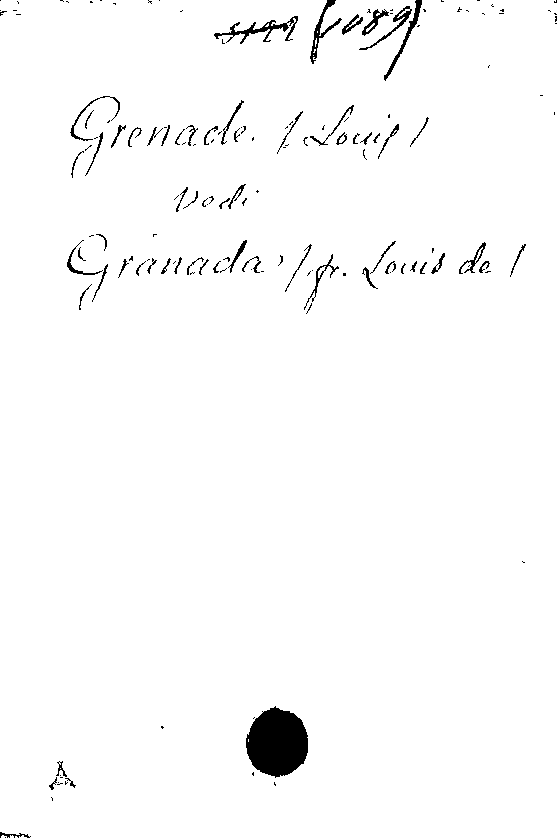 (1089)
Grenade. / Louis /
Vedi
Granada / fr. Louis de /